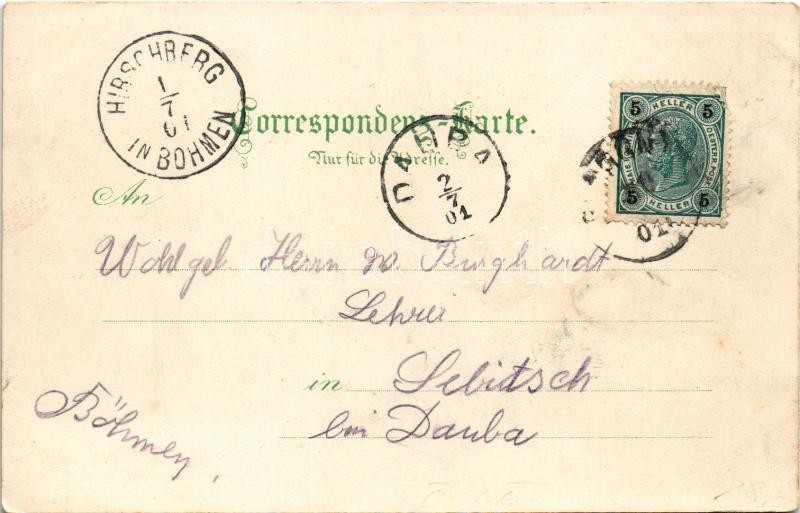 HIRSCHBERG
1
7
01
IN BÖHMEN
Correspondenz-Karte.
Nur für die Adresse.
DAUBA
2
7
01
5 HELLER 5
5 HELLER 5
01
An
Wohlgeb Herrn W. Burghardt
Lehrer
in Sebitsch
bei Dauba
Böhmen,